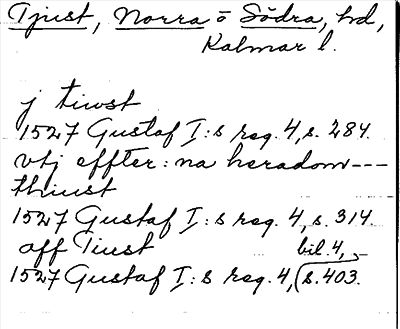 Tjust, Norra o Södra, hd,
Kalmar l.
j tiwst
1527 Gustaf I:s reg. 4, s. 284.
vtj effter: na heradom---
thiust
1527 Gustaf I:s reg. 4, s. 314.
aff Tiust bil. 4,
1527 Gustaf I:s reg. 4, (s. 403.